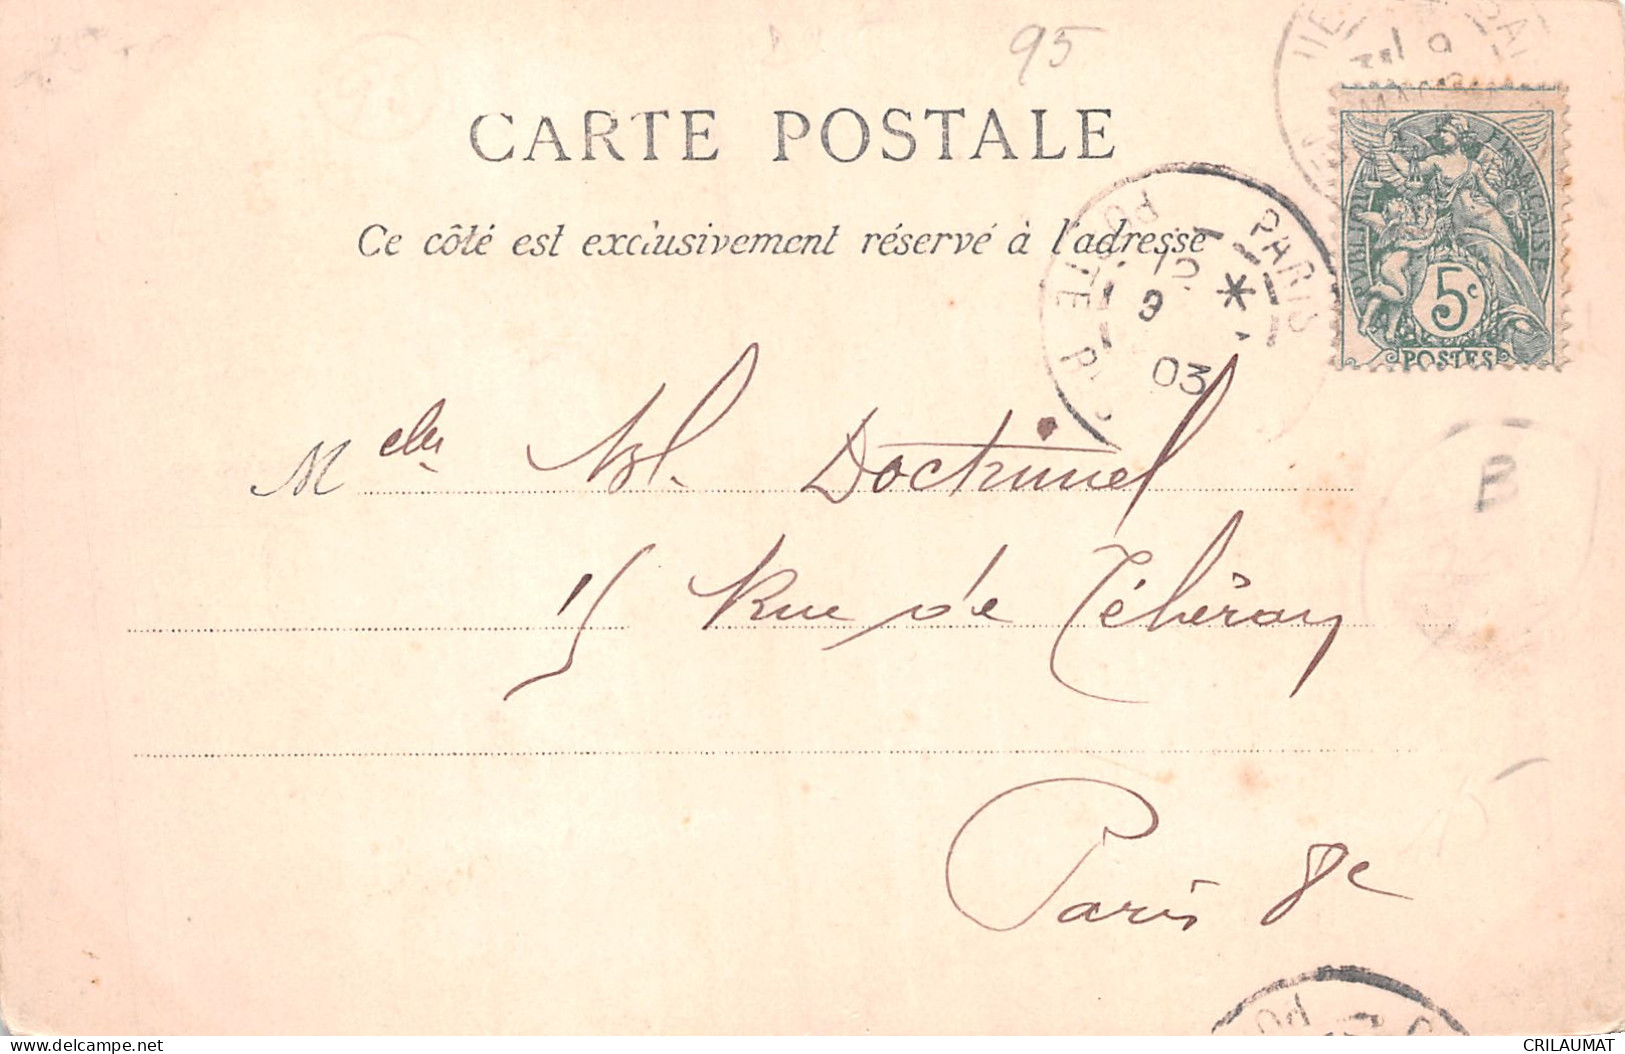 95
CARTE POSTALE
Ce côté est exclusivement réservé à l'adresse
PARIS
10
9
03
RÉPUBLIQUE FRANÇAISE
5c
POSTES
B
M elle M. Doctrinel
15 Rue de Téhéran
Paris 8e
delcampe.net
CRILAUMAT